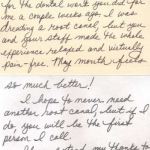 for the dental work you did for
me a couple weeks ago. I was
dreading a root canal, but you
and your staff made the whole
experience relaxed and virtually
pain-free. My mouth feels
so much better!
I hope to never need
another root canal, but if I
do, you will be the first
person I call.
my thanks to